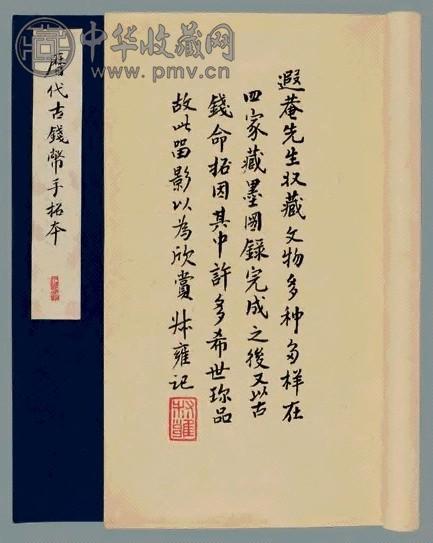 中华收藏网
www.pmv.cn
遐菴先生収藏文物多种多樣在
四家藏墨圖錄完成之後又以古
錢命拓因其中許多希世珎品
故此畱影以為欣賞 雍記
歷代古錢幣手拓本